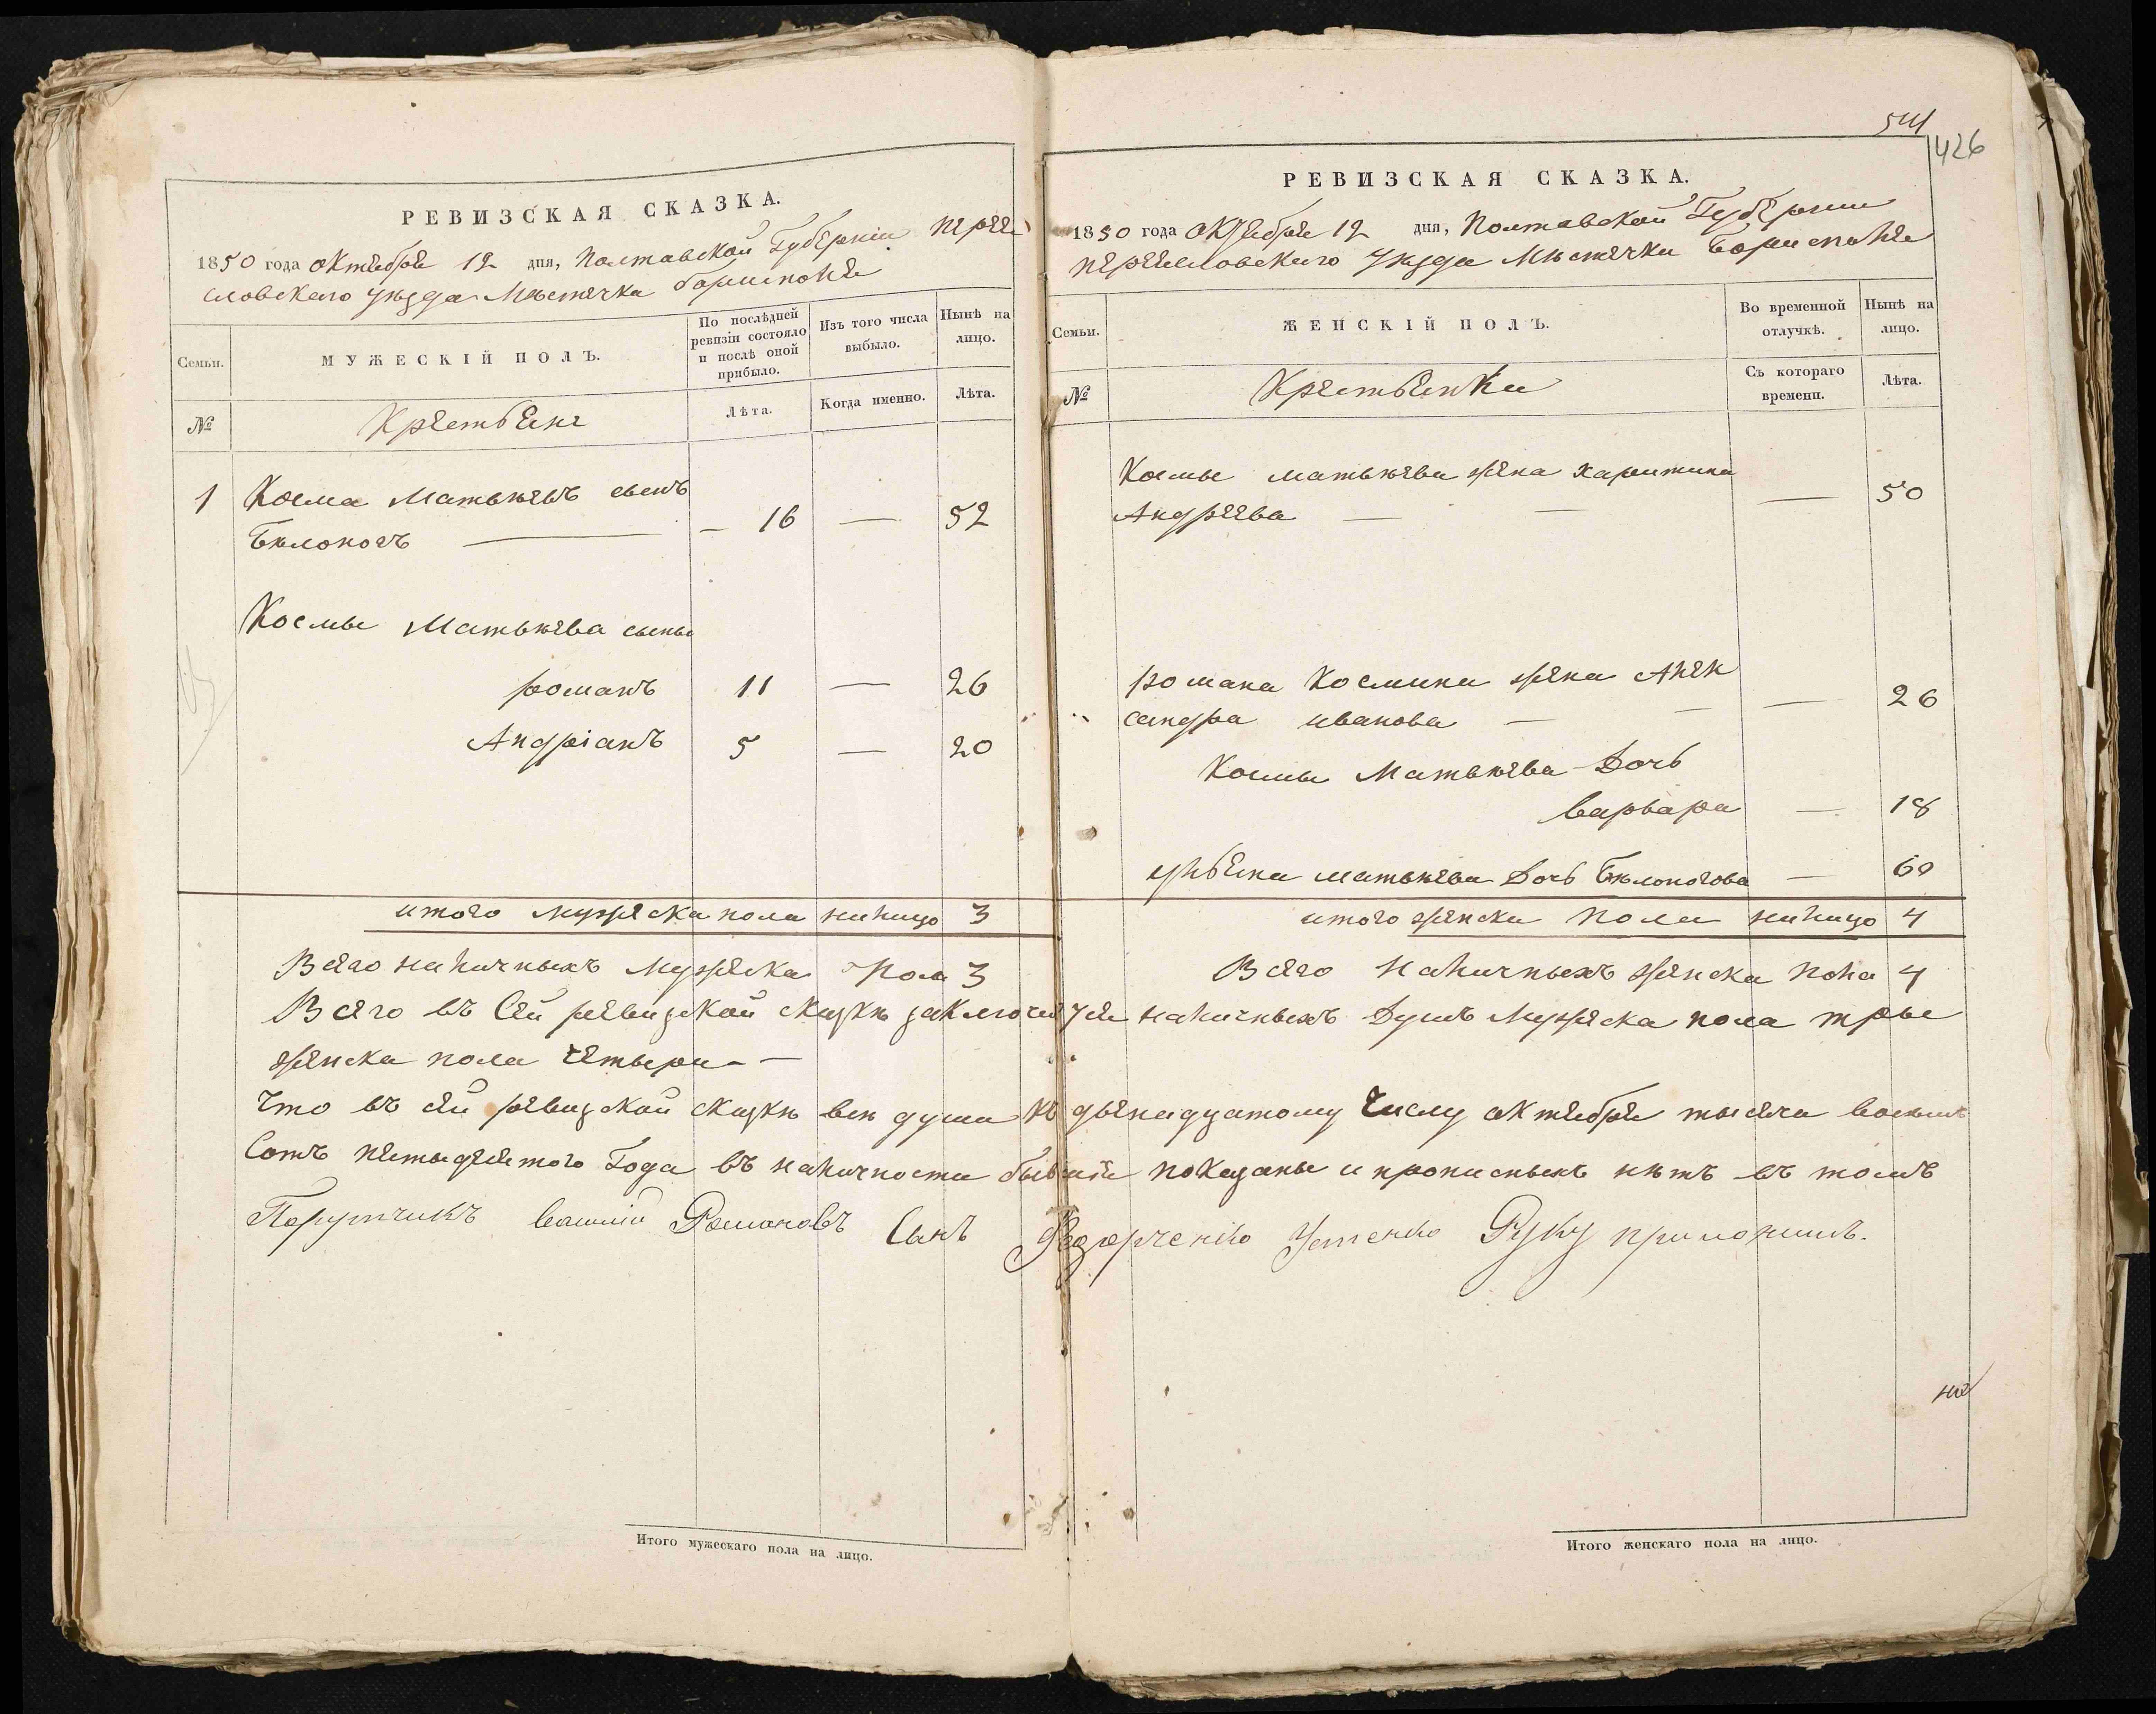 РЕВИЗСКАЯ СКАЗКА.
1850 года октября 12 дня, Полтавской Губерніи перея
словского уѣзда Мѣстечка борисполя
Семьи.
МУЖЕСКІЙ ПОЛЪ.
По послѣдней ревизіи состояло и послѣ оной прибыло.
Изъ того числа выбыло.
Нынѣ на лицо.
№
Крестьяне
Лѣта.
Когда именно.
Лѣта.
1 Косма Матвѣевъ сынъ
Бѣлоногъ — 16 — 52
Космы Матвѣева сыны
романъ 11 — 26
Андріанъ 5 — 20
итого мужеска пола налицо 3
Всего наличныхъ мужеска пола 3
541
426
РЕВИЗСКАЯ СКАЗКА.
1850 года октября 12 дня, Полтавской Губернии
переясловского уѣзда Мѣстечка Борисполя
Семьи.
ЖЕНСКІЙ ПОЛЪ.
Во временной отлучкѣ.
Нынѣ на лицо.
№
Крестьянки
Съ котораго времени.
Лѣта.
Космы матвѣева жена харитина
Андреева — — — 50
романа Космина жена Алек
сандра иванова — — — 26
Космы Матвѣева Дочь
варвара — 18
ульяна матвѣева Дочь Бѣлоногова — 60
итого женска пола налицо 4
Всего наличныхъ женска пола 4
Всего въ сей ревизской сказкѣ заключается наличныхъ Душъ мужеска пола тры
женска пола четыри — —
Что въ сей ревизской сказкѣ всѣ души къ двенадцатому числу октября тысяча восемь
Сотъ пятыдесятого Года въ наличности бывшія показаны и прописныхъ нѣтъ въ томъ
Порутчикъ Романовъ Сынъ Руку приложилъ.
Итого мужескаго пола на лицо.
Итого женскаго пола на лицо.